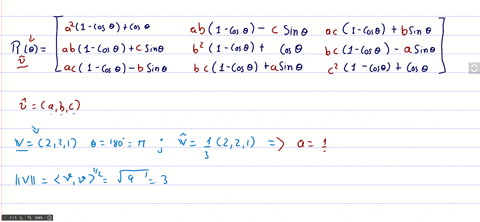 R_v̂(θ) = [ a²(1-Cosθ)+Cosθ    ab(1-Cosθ)-cSinθ    ac(1-Cosθ)+bSinθ
ab(1-Cosθ)+cSinθ    b²(1-Cosθ)+Cosθ    bc(1-Cosθ)-aSinθ
ac(1-Cosθ)-bSinθ    bc(1-Cosθ)+aSinθ    c²(1-Cosθ)+Cosθ ]
v̂ = (a,b,c)
w = (2,2,1)  θ = 180° = π ; ŵ = 1/3 (2,2,1) => a = 1
||V|| = <v,v>^1/2 = √9 = 3